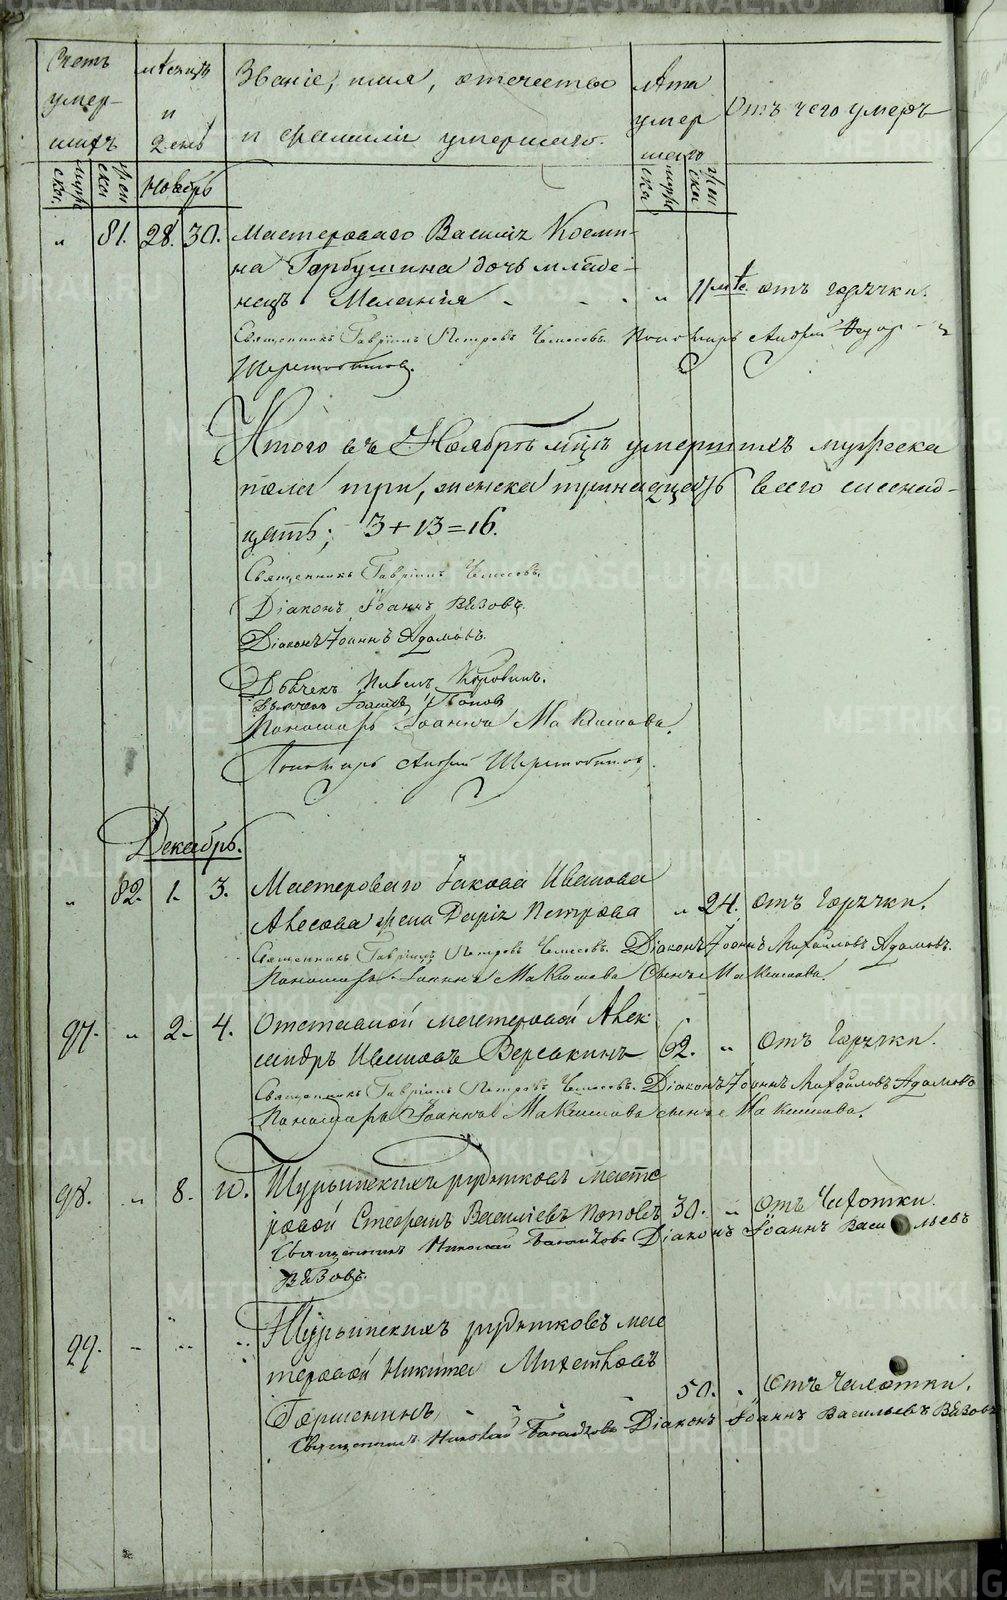 Счетъ умер- шихъ
мѣсяцъ и день
Званіе, имя, отечество
и фамилія умершаго.
лѣта умер шаго
Отъ чего умеръ
Ноябрь
" 81. 28. 30. Мастероваго Василія Косми-
на Горбушина дочь младе-
нецъ Меланія - - - " 11 мѣс. отъ горячки.
Священникъ Гавріилъ Петровъ Пономарь Андрей
Шерстобитовъ.
Итого въ Ноябрѣ мцѣ умершихъ мужеска
пола три, женска тринадцать всего шеснад-
цать; 3+13=16.
Священникъ Гавріилъ
Діаконъ Іоаннъ Вязовъ.
Діаконъ Іоаннъ Адамовъ.
Дьячекъ Павелъ Коровинъ.
Дьячекъ Попов
Пономарь Іоаннъ Максимовъ.
Пономарь Андрей Шерстобитовъ.
Декабрь.
" 82. 1. 3. Мастероваго Іакова Иванова
жена Дарія Петрова " 24. отъ горячки.
Священникъ Гавріилъ Петровъ Діаконъ Іоаннъ Михайловъ Адамовъ.
Пономарь Іоаннъ Максимовъ сынъ Максимовъ.
97. " 2. 4. Отставной мастеровой Алек
сандръ Ивановъ Веревкинъ 62. " отъ горячки.
Священникъ Гавріилъ Петровъ Діаконъ Іоаннъ Михайловъ Адамовъ
Пономарь Іоаннъ Максимовъ сынъ Максимовъ.
98. " 8. 10. Турьинскихъ рудниковъ масте
ровой Стефанъ Василіевъ Поповъ 30. " отъ Чахотки.
Священникъ Николай Діаконъ Іоаннъ Васильевъ
Вязовъ.
99. - " " Турьинскихъ рудниковъ мас
теровой Никита
Паршенинъ 50. " отъ чахотки.
Священникъ Николай Діаконъ Іоаннъ Васильевъ Вязовъ
METRIKI.GASO-URAL.RU